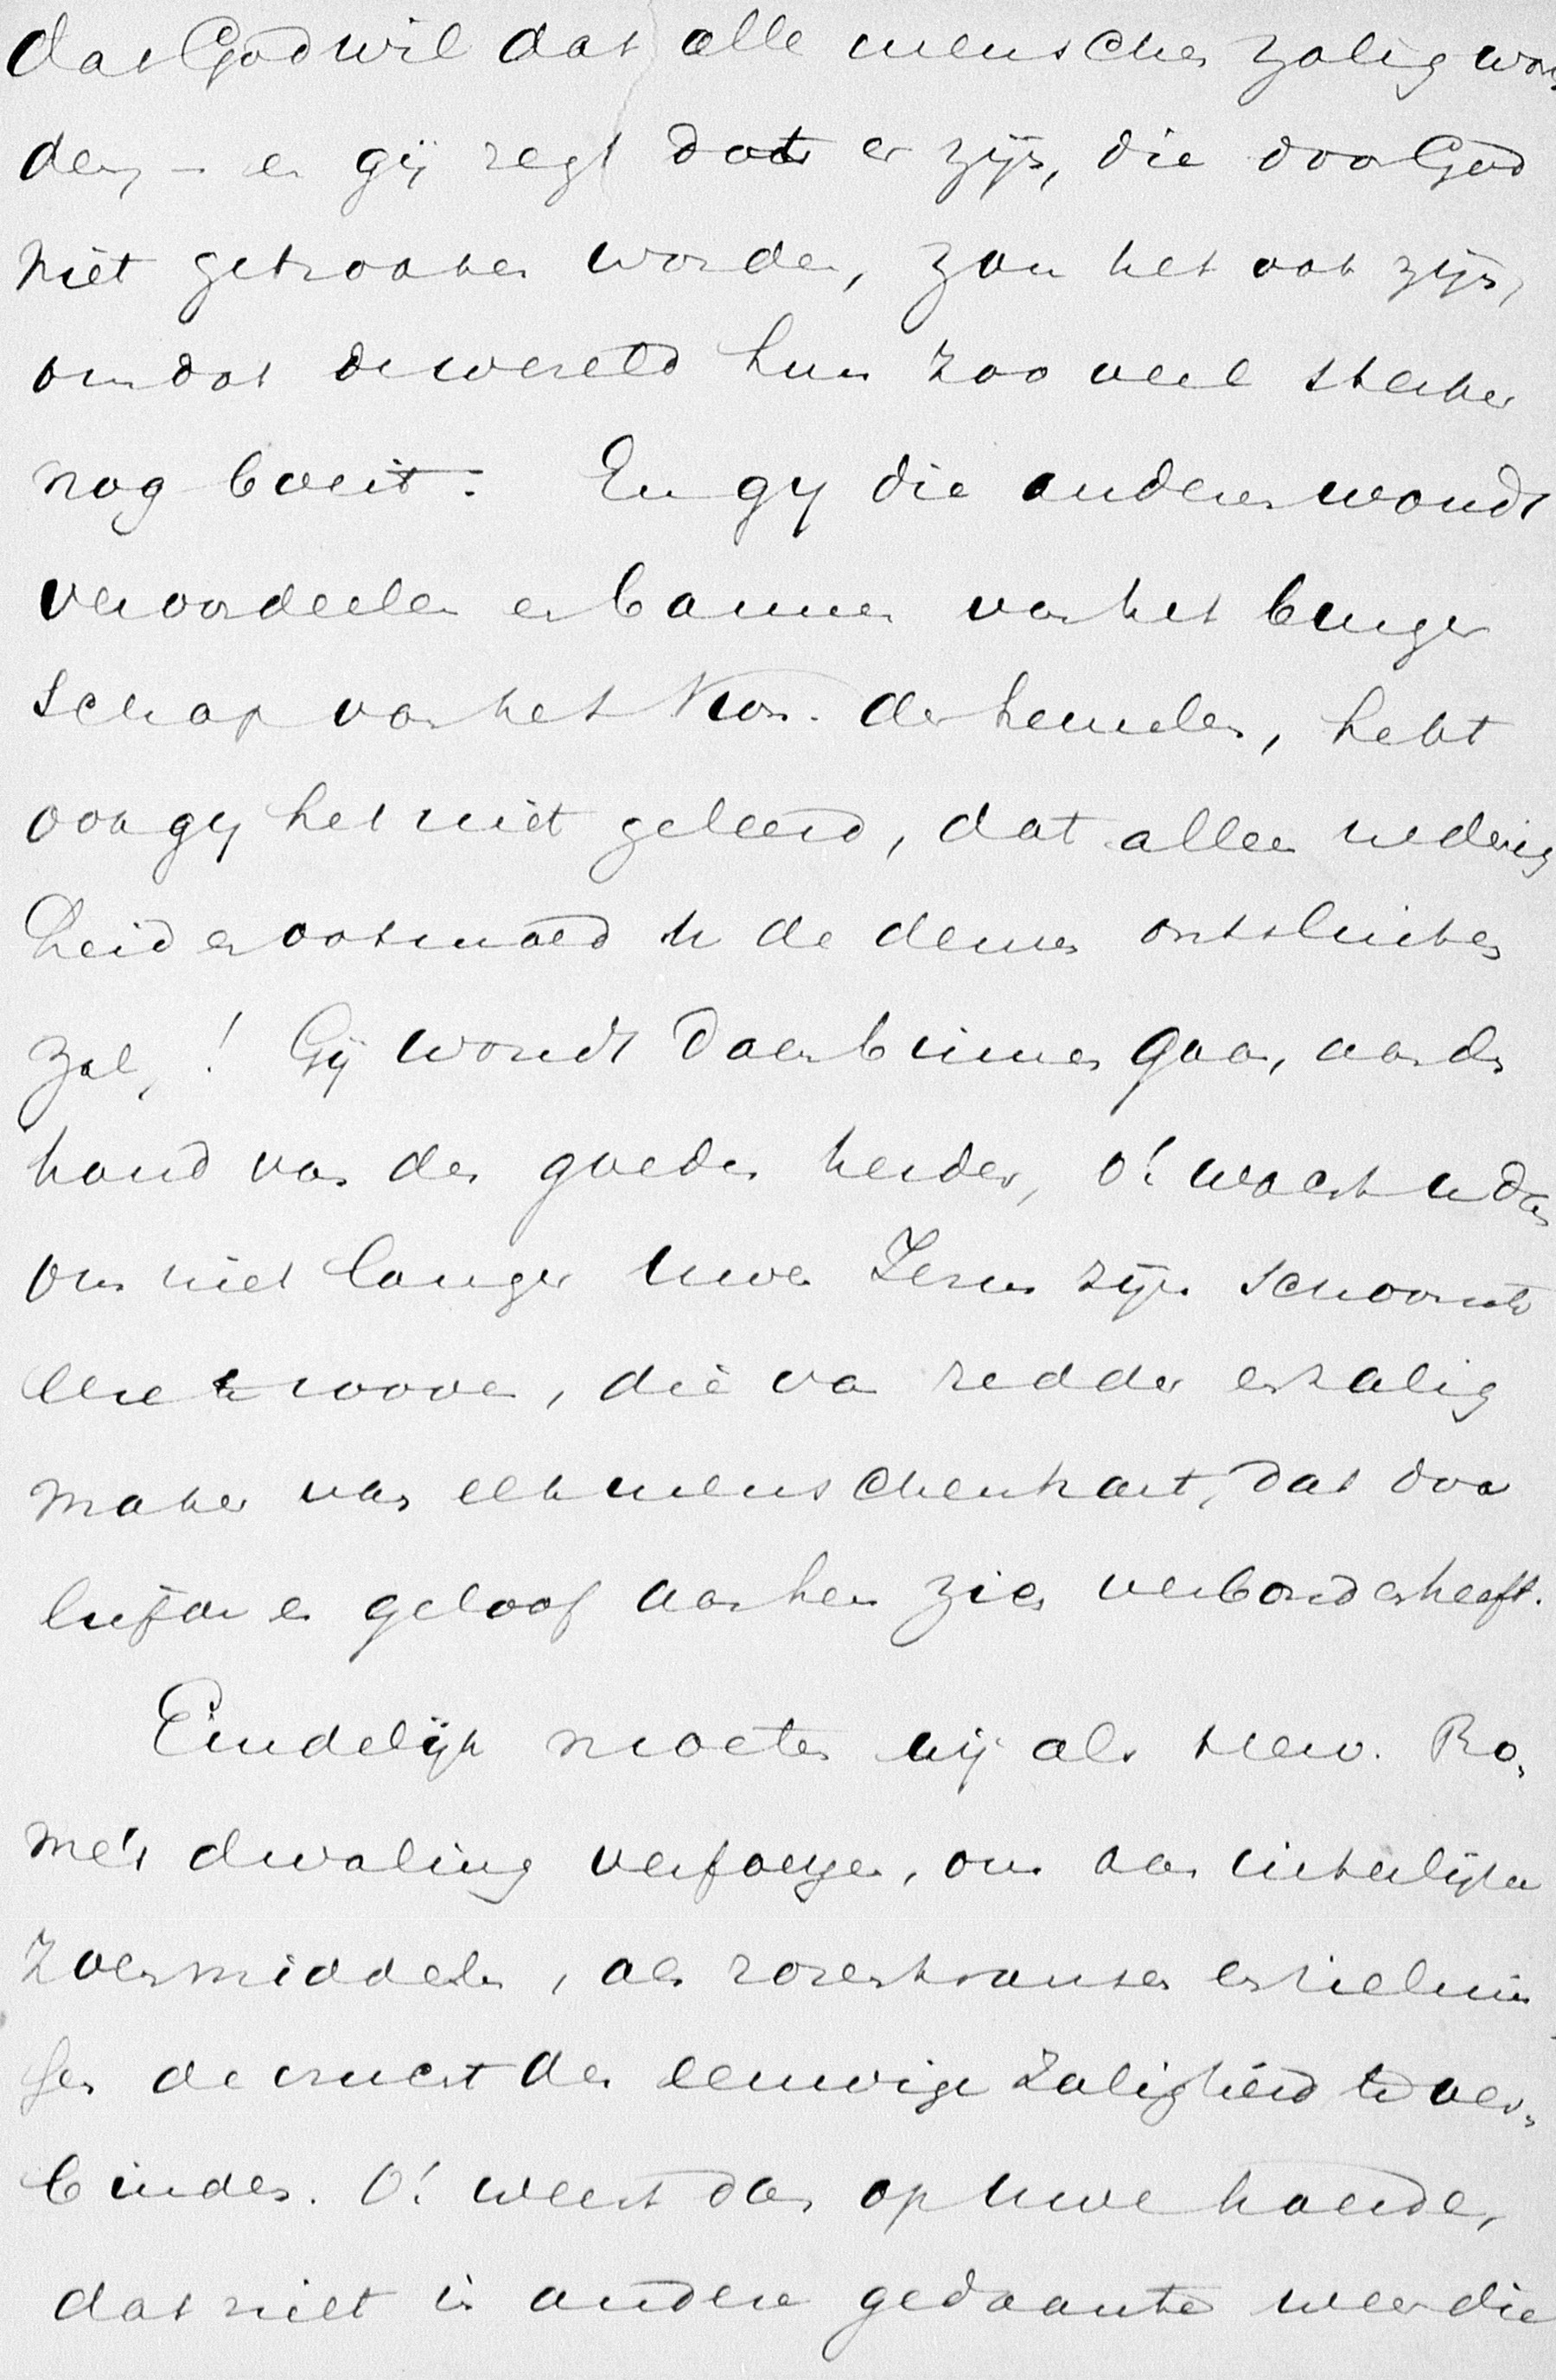 dat God wil dat alle menschen zalig wor,
den, – en gij zegt dat er zijn, die door God
niet getrokken worden, zou het ook zijn,
omdat de wereld hun zoo veel sterker
nog boeit. En gy die anderen wondt
veroordeelen en bannen van het burger
schap van het Kon. der hemelen, hebt
ook gy het niet geleerd, dat alleen nederig
heid en ootmoed u de deuren ontsluiten
zal,! Gij wondt daar binnen gaan, aan de
hand van den goeden herder, o! wacht u dan
om niet langer uwen Jezus zijn schoonste
eere te rooven, die van redder en zalig
maker van elk menschenhart, dat door
liefde en geloof aan hem zich verbonden heeft.
Eindelijk moeten wij als nieuw. Ro,
me's dwaling verfoeyen, om aan uiterlijke
zoenmiddelen, aan rozenkransen en zielmis
sen de vrucht der eeuwige zaligheid te ver,
binden. O! weest dan op uwe hoede,
dat niet in andere gedaante weer die